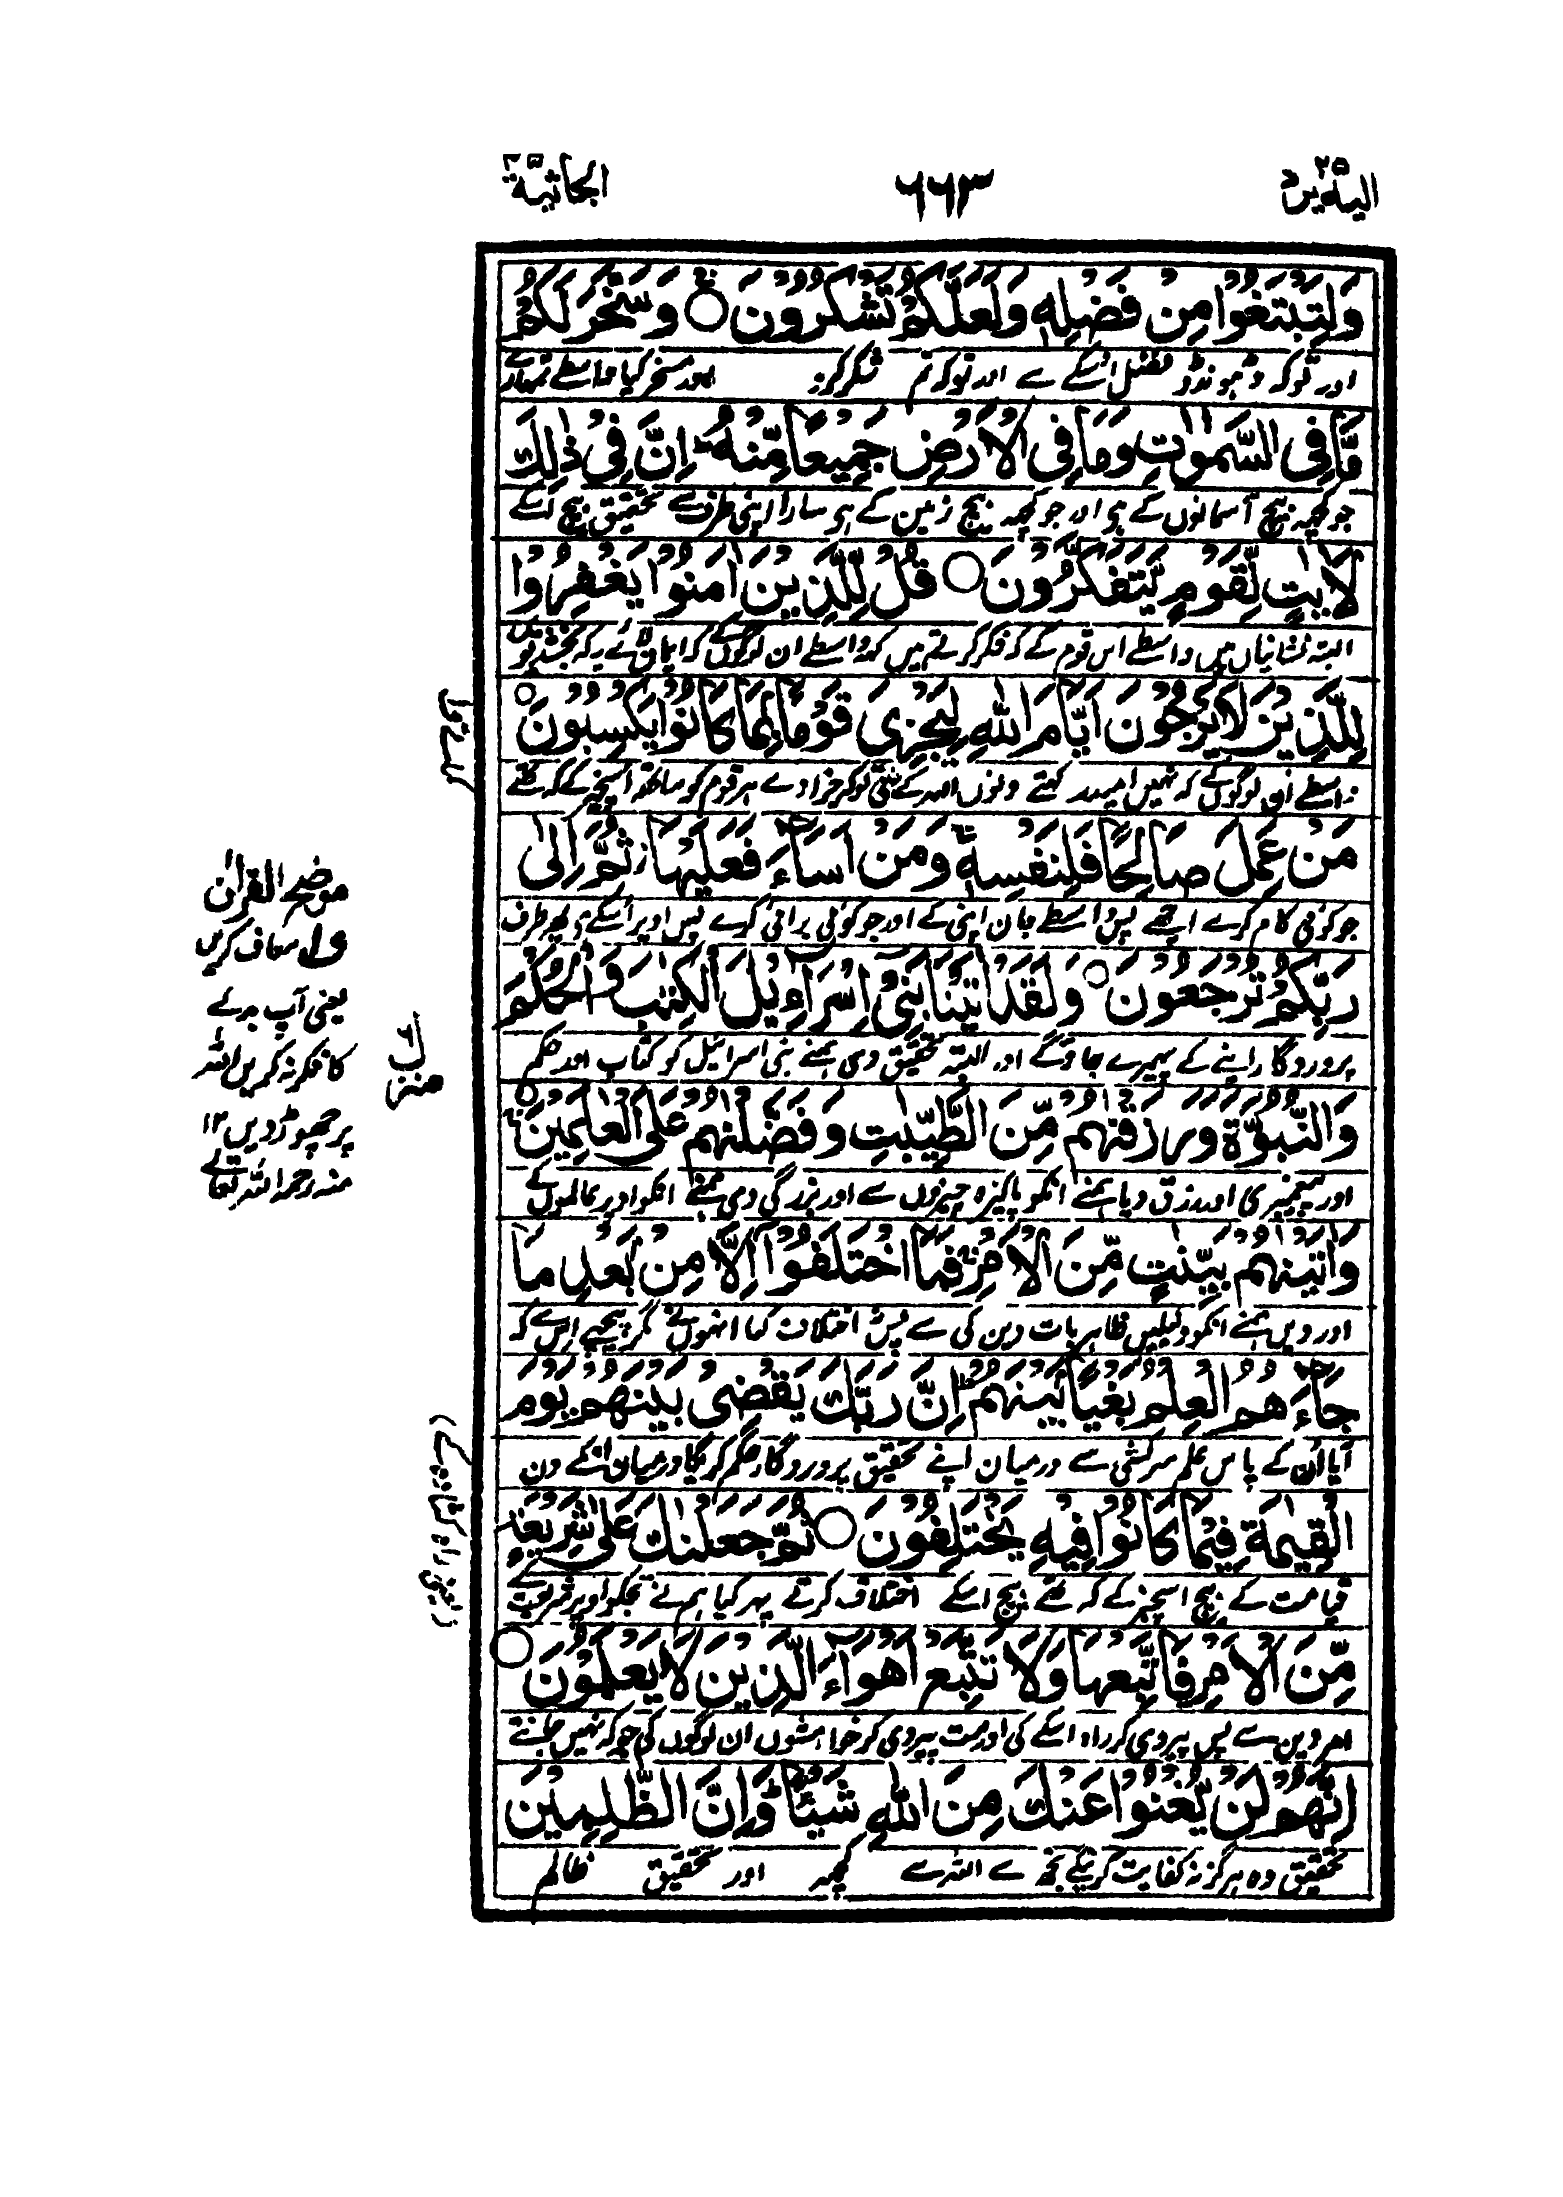 الیہ یرد ۲۵
۶۶۳
الجاثیۃ ۴۵
وَلِتَبْتَغُوْا مِنْ فَضْلِهٖ وَلَعَلَّكُمْ تَشْكُرُوْنَ ○ وَسَخَّرَ لَكُمْ
اور توکہ ڈھونڈو فضل اُسکے سے اور توکہ تم شکر کرو اور مسخر کیا واسطے تمہارے
مَّا فِی السَّمٰوٰتِ وَمَا فِی الْاَرْضِ جَمِیْعًا مِّنْهُ ؕ اِنَّ فِیْ ذٰلِكَ
جو کچھ بیچ آسمانوں کے ہی اور جو کچھ بیچ زمین کے ہی سارا اپنی طرف سے تحقیق بیچ اسکے
لَاٰیٰتٍ لِّقَوْمٍ یَّتَفَكَّرُوْنَ ○ قُلْ لِّلَّذِیْنَ اٰمَنُوْا یَغْفِرُوْا
البتہ نشانیاں ہیں واسطے اس قوم کے کہ فکر کرتے ہیں کہہ واسطے ان لوگوں کے کہ ایمان لائے ہیں کہ بخشدیویں
لِلَّذِیْنَ لَا یَرْجُوْنَ اَیَّامَ اللّٰهِ لِیَجْزِیَ قَوْمًۢا بِمَا كَانُوْا یَكْسِبُوْنَ ○
واسطے ان لوگوں کے کہ نہیں امید رکھتے دنوں اللہ کے کی توکہ جزا دے ہر قوم کو ساتھ اسچیز کے کہ تھے
مَنْ عَمِلَ صَالِحًا فَلِنَفْسِهٖ ۚ وَمَنْ اَسَآءَ فَعَلَیْهَا ؗ ثُمَّ اِلٰی
جو کوئی کام کرے اچھے پس واسطے جان اپنی کے اور جو کوئی برائی کرے پس اوپر اُسکے ہی پھر طرف
رَبِّكُمْ تُرْجَعُوْنَ ○ وَلَقَدْ اٰتَیْنَا بَنِیْۤ اِسْرَآءِیْلَ الْكِتٰبَ وَالْحُكْمَ
پروردگار اپنے کے پھیرے جاؤگے اور البتہ تحقیق دی ہمنے بنی اسرائیل کو کتاب اور حکم
وَالنُّبُوَّةَ وَرَزَقْنٰهُمْ مِّنَ الطَّیِّبٰتِ وَفَضَّلْنٰهُمْ عَلَی الْعٰلَمِیْنَ ○
اور پیغمبری اور رزق دیا ہمنے انکو پاکیزہ چیزوں سے اور بزرگی دی ہمنے انکو اوپر عالموں کے
وَاٰتَیْنٰهُمْ بَیِّنٰتٍ مِّنَ الْاَمْرِ ۚ فَمَا اخْتَلَفُوْۤا اِلَّا مِنْۢ بَعْدِ مَا
اور دیں ہمنے انکو دلیلیں ظاہر بات دین کی سے پس اختلاف کیا انہوں نے مگر پیچھے اس کے کہ
جَآءَهُمُ الْعِلْمُ بَغْیًۢا بَیْنَهُمْ ؕ اِنَّ رَبَّكَ یَقْضِیْ بَیْنَهُمْ یَوْمَ
آیا اُن کے پاس علم سرکشی سے درمیان اپنے تحقیق پروردگار حکم کریگا درمیان انکے دن
الْقِیٰمَةِ فِیْمَا كَانُوْا فِیْهِ یَخْتَلِفُوْنَ ○ ثُمَّ جَعَلْنٰكَ عَلٰی شَرِیْعَةٍ
قیامت کے بیچ اسچیز کے کہ تھے بیچ اسکے اختلاف کرتے پھر کیا ہم نے تجکو اوپر شریعت کے
مِّنَ الْاَمْرِ فَاتَّبِعْهَا وَلَا تَتَّبِعْ اَهْوَآءَ الَّذِیْنَ لَا یَعْلَمُوْنَ ○
امر دین سے پس پیروی کر راہ اسکے کی اور مت پیروی کر خواہشوں ان لوگوں کی جو کہ نہیں جانتے
اِنَّهُمْ لَنْ یُّغْنُوْا عَنْكَ مِنَ اللّٰهِ شَیْـًٔا ؕ وَاِنَّ الظّٰلِمِیْنَ
تحقیق وہ ہرگز نہ کفایت کرینگے تجھ سے اللہ سے کچھ اور تحقیق ظالم
موضح القرآن
ف۱ معاف کریں
یعنی آپ بدلے
کا فکر نہ کریں اللہ
پر چھوڑ دیں ۱۲
منہ رحمہ اللہ تعالے
منزل ۶